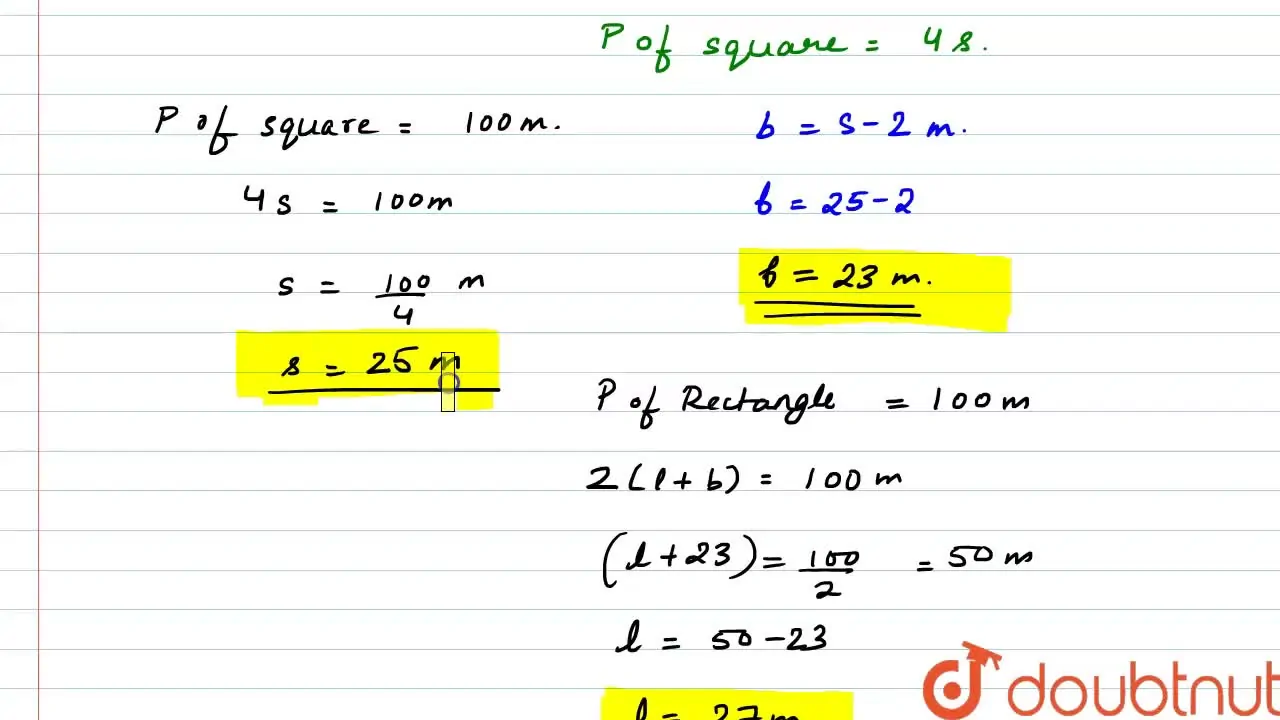 P of square = 4 s.
P of square = 100 m.
4s = 100m
s = 100/4 m
s = 25 m
b = s - 2 m.
b = 25 - 2
b = 23 m.
P of Rectangle = 100 m
2(l + b) = 100 m
(l + 23) = 100/2 = 50 m
l = 50 - 23
l = 27 m
doubtnut